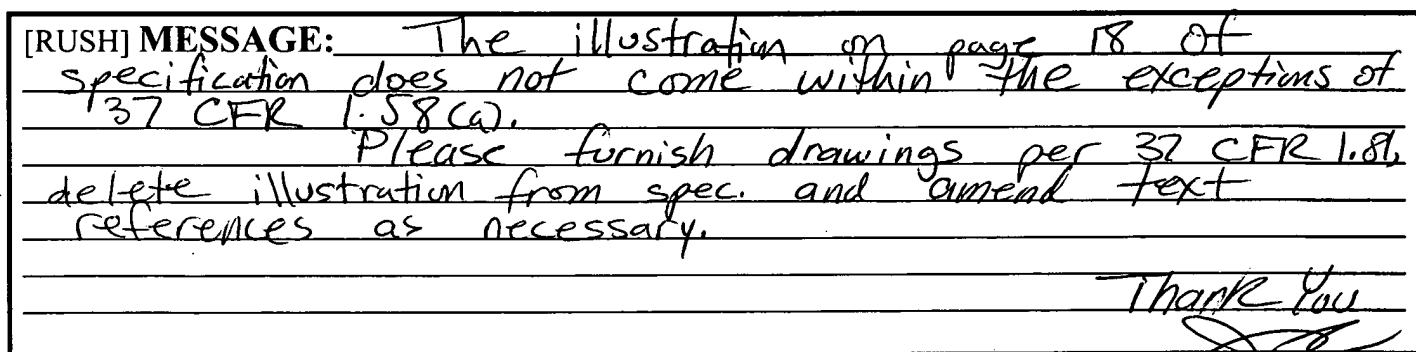 [RUSH] MESSAGE: The illustration on page 18 of
specification does not come within the exceptions of
37 CFR 1.58(a).
Please furnish drawings per 37 CFR 1.81,
delete illustration from spec. and amend text
references as necessary.
Thank You